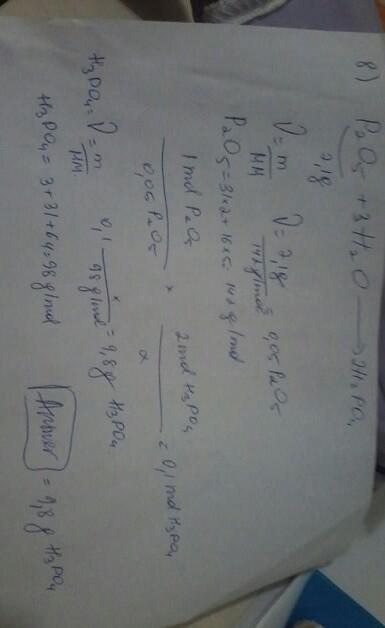 8) P2O5 + 3H2O → 2H3PO4
7,1g
ν = m / MM ν = 7,1g / 142g/mol = 0,05 P2O5
P2O5 = 31x2 + 16x5 = 142 g/mol
1 mol P2O5 / 0,05 P2O5 x 2 mol H3PO4 / x = 0,1 mol H3PO4
H3PO4 = ν = m / MM 0,1 x / 98g/mol = 9,8g H3PO4
H3PO4 = 3+31+64 = 98g/mol
Answer = 9,8g H3PO4